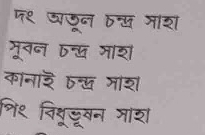 দং অতুল চন্দ্র সাহা
সুবল চন্দ্র সাহা
কানাই চন্দ্র সাহা
পিং বিধুভূষন সাহা